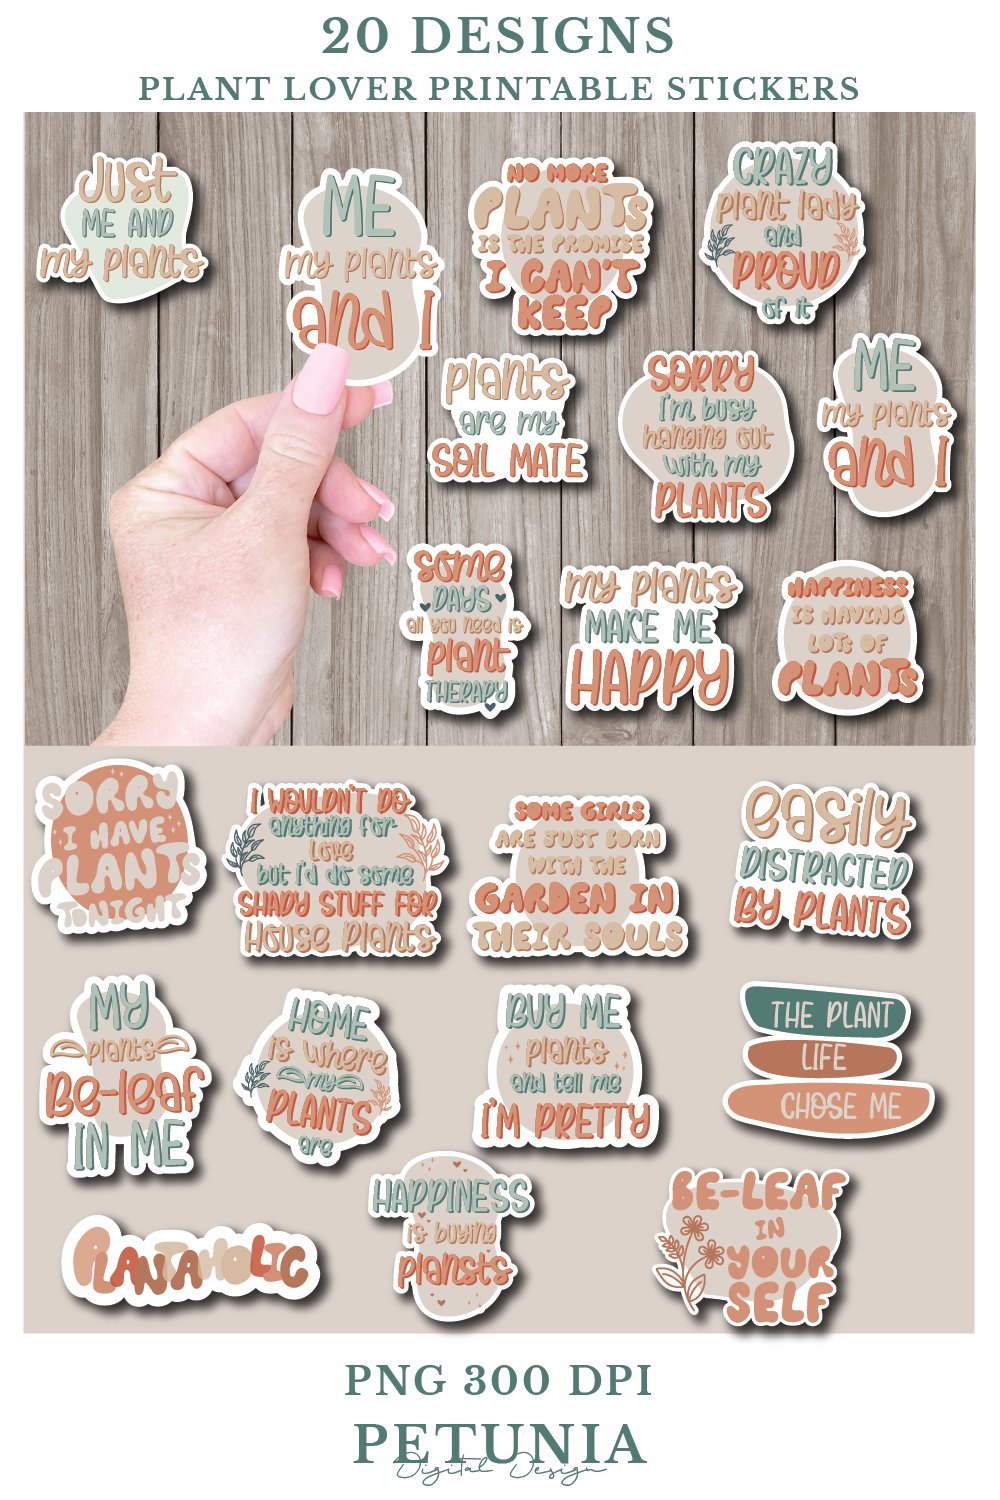 20 DESIGNS
PLANT LOVER PRINTABLE STICKERS
Just
ME AND
my plants
ME
my plants
and I
NO MORE
PLANTS
IS THE PROMISE
I CAN'T
KEEP
CRAZY
plant lady
and
PROUD
of it
plants
are my
SOIL MATE
SORRY
I'm busy
hanging out
with my
PLANTS
ME
my plants
and I
some
DAYS
all you need is
plant
THERAPY
my plants
MAKE ME
HAPPY
HAPPINESS
IS HAVING
LOTS OF
PLANTS
SORRY
I HAVE
PLANTS
TONIGHT
I WOULDN'T DO
anything for
love
but i'd do some
SHADY STUFF FOR
House Plants
SOME GIRLS
ARE JUST BORN
WITH THE
GARDEN IN
THEIR SOULS
easily
DISTRACTED
BY PLANTS
MY
plants
Be-leaf
IN ME
HOME
is where
my
PLANTS
are
BUY ME
plants
and tell me
I'M PRETTY
THE PLANT
LIFE
CHOSE ME
PLANTAHOLIC
HAPPINESS
is buying
plansts
BE-LEAF
IN
YOUR
SELF
PNG 300 DPI
PETUNIA
Digital Design